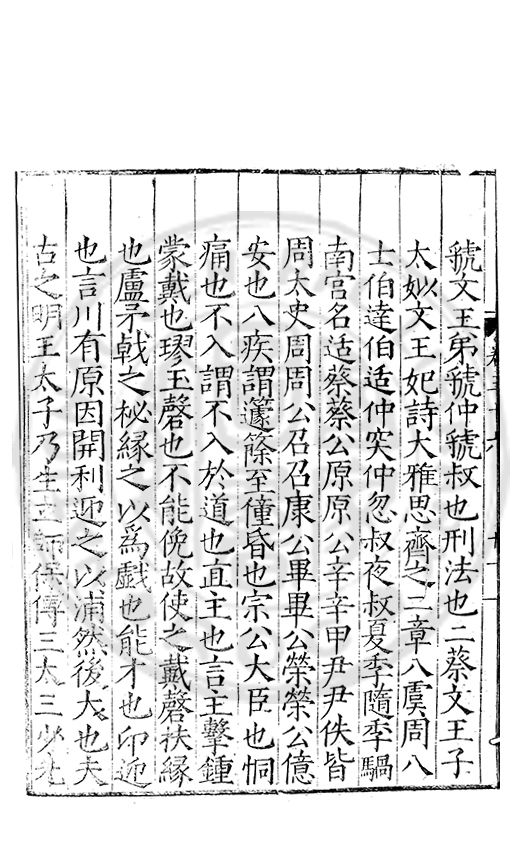 虢文王弟虢仲虢叔也刑法也二蔡文王子
太姒文王妃詩大雅思齊之二章八虞周八
士伯達伯适仲突仲忽叔夜叔夏季隨季騧
南宫名适蔡蔡公原原公辛辛甲尹尹佚皆
周太史周周公召召康公畢畢公榮榮公億
安也八疾謂籧篨至僮昏也宗公大臣也恫
痛也不入謂不入於道也直主也言主擊鍾
蒙戴也璆玉磬也不能俛故使之戴磬扶縁
也盧矛戟之柲縁之以爲戲也能才也卬迎
也言川有原因開利迎之以浦然後大也夫
古之明王太子乃生立師保傅三太三少